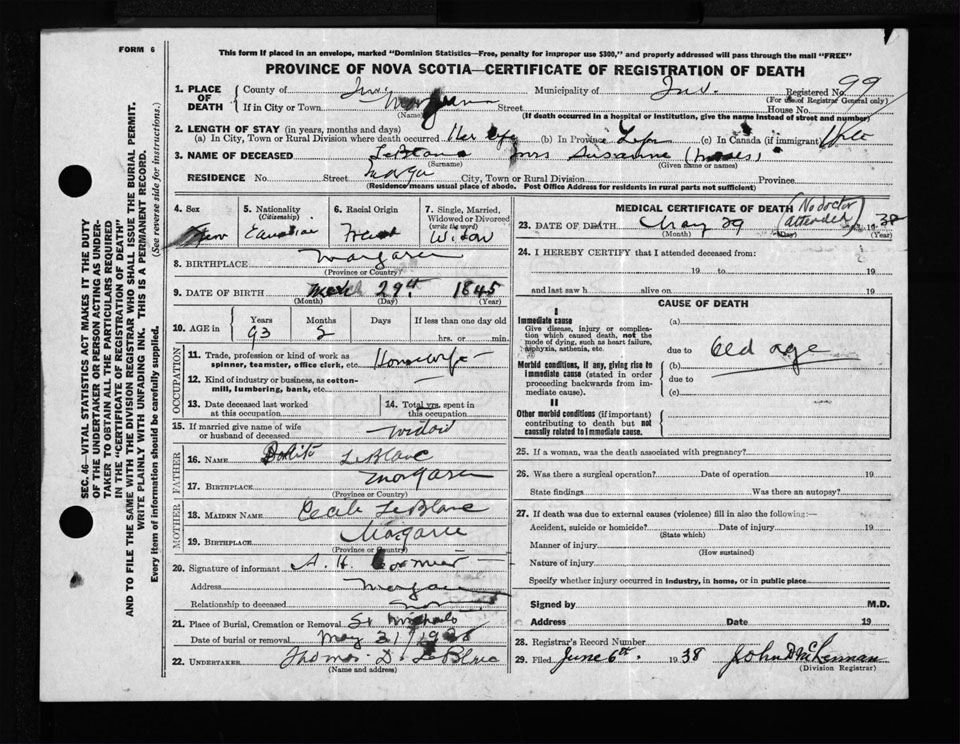 FORM 6
This form if placed in an envelope, marked "Dominion Statistics—Free, penalty for improper use $300," and properly addressed will pass through the mail "FREE"
PROVINCE OF NOVA SCOTIA—CERTIFICATE OF REGISTRATION OF DEATH
1. PLACE OF DEATH County of Inv. Municipality of Inv. Registered No. 99
(For use of Registrar General only)
If in City or Town Street House No.
(Name) (If death occurred in a hospital or institution, give the name instead of street and number)
2. LENGTH OF STAY (in years, months and days)
(a) In City, Town or Rural Division where death occurred Her life (b) In Province Life (c) In Canada (if immigrant)
3. NAME OF DECEASED LeBlanc Mrs Susanne
(Surname) (Given name or names)
RESIDENCE No. Street City, Town or Rural Division Province
(Residence means usual place of abode. Post Office Address for residents in rural parts not sufficient)
4. Sex 5. Nationality (Citizenship) 6. Racial Origin 7. Single, Married, Widowed or Divorced (write the word)
Fem Canadian French Widow
8. BIRTHPLACE Margaree
(Province or Country)
9. DATE OF BIRTH March 29th 1845
(Month) (Day) (Year)
10. AGE in Years Months Days If less than one day old
93 2 hrs. or min.
OCCUPATION
11. Trade, profession or kind of work as spinner, teamster, office clerk, etc. Housewife
12. Kind of industry or business, as cotton-mill, lumbering, bank, etc. —
13. Date deceased last worked at this occupation 14. Total yrs. spent in this occupation
15. If married give name of wife or husband of deceased widow
FATHER
16. NAME LeBlanc
17. BIRTHPLACE Margaree
(Province or Country)
MOTHER
18. MAIDEN NAME Cecile LeBlanc
19. BIRTHPLACE Margaree
(Province or Country)
20. Signature of informant A. H. Cormier
Address Margaree
Relationship to deceased
21. Place of Burial, Cremation or Removal St Michaels
Date of burial or removal May 31/1938
22. UNDERTAKER Thomas D. LeBlanc
(Name and address)
MEDICAL CERTIFICATE OF DEATH (No doctor attended)
23. DATE OF DEATH May 29 1938
(Month) (Day) (Year)
24. I HEREBY CERTIFY that I attended deceased from:
19 to 19
and last saw h alive on 19
CAUSE OF DEATH
I
Immediate cause (a)
Give disease, injury or complication which caused death, not the mode of dying, such as heart failure, asphyxia, asthenia, etc.
due to Old age
Morbid conditions, if any, giving rise to immediate cause (stated in order proceeding backwards from immediate cause).
(b)
due to
(c)
II
Other morbid conditions (if important) contributing to death but not causally related to immediate cause.
25. If a woman, was the death associated with pregnancy?
26. Was there a surgical operation? Date of operation 19
State findings Was there an autopsy?
27. If death was due to external causes (violence) fill in also the following:—
Accident, suicide or homicide? Date of injury 19
(State which)
Manner of injury
(How sustained)
Nature of injury
Specify whether injury occurred in industry, in home, or in public place
Signed by M.D.
Address Date 19
28. Registrar's Record Number
29. Filed June 6th. 1938 John D McLennan
(Division Registrar)
SEC. 46—VITAL STATISTICS ACT MAKES IT THE DUTY
OF THE UNDERTAKER OR PERSON ACTING AS UNDER-
TAKER TO OBTAIN ALL THE PARTICULARS REQUIRED
IN THE "CERTIFICATE OF REGISTRATION OF DEATH"
AND TO FILE THE SAME WITH THE DIVISION REGISTRAR WHO SHALL ISSUE THE BURIAL PERMIT.
WRITE PLAINLY WITH UNFADING INK. THIS IS A PERMANENT RECORD.
Every item of information should be carefully supplied. (See reverse side for instructions.)